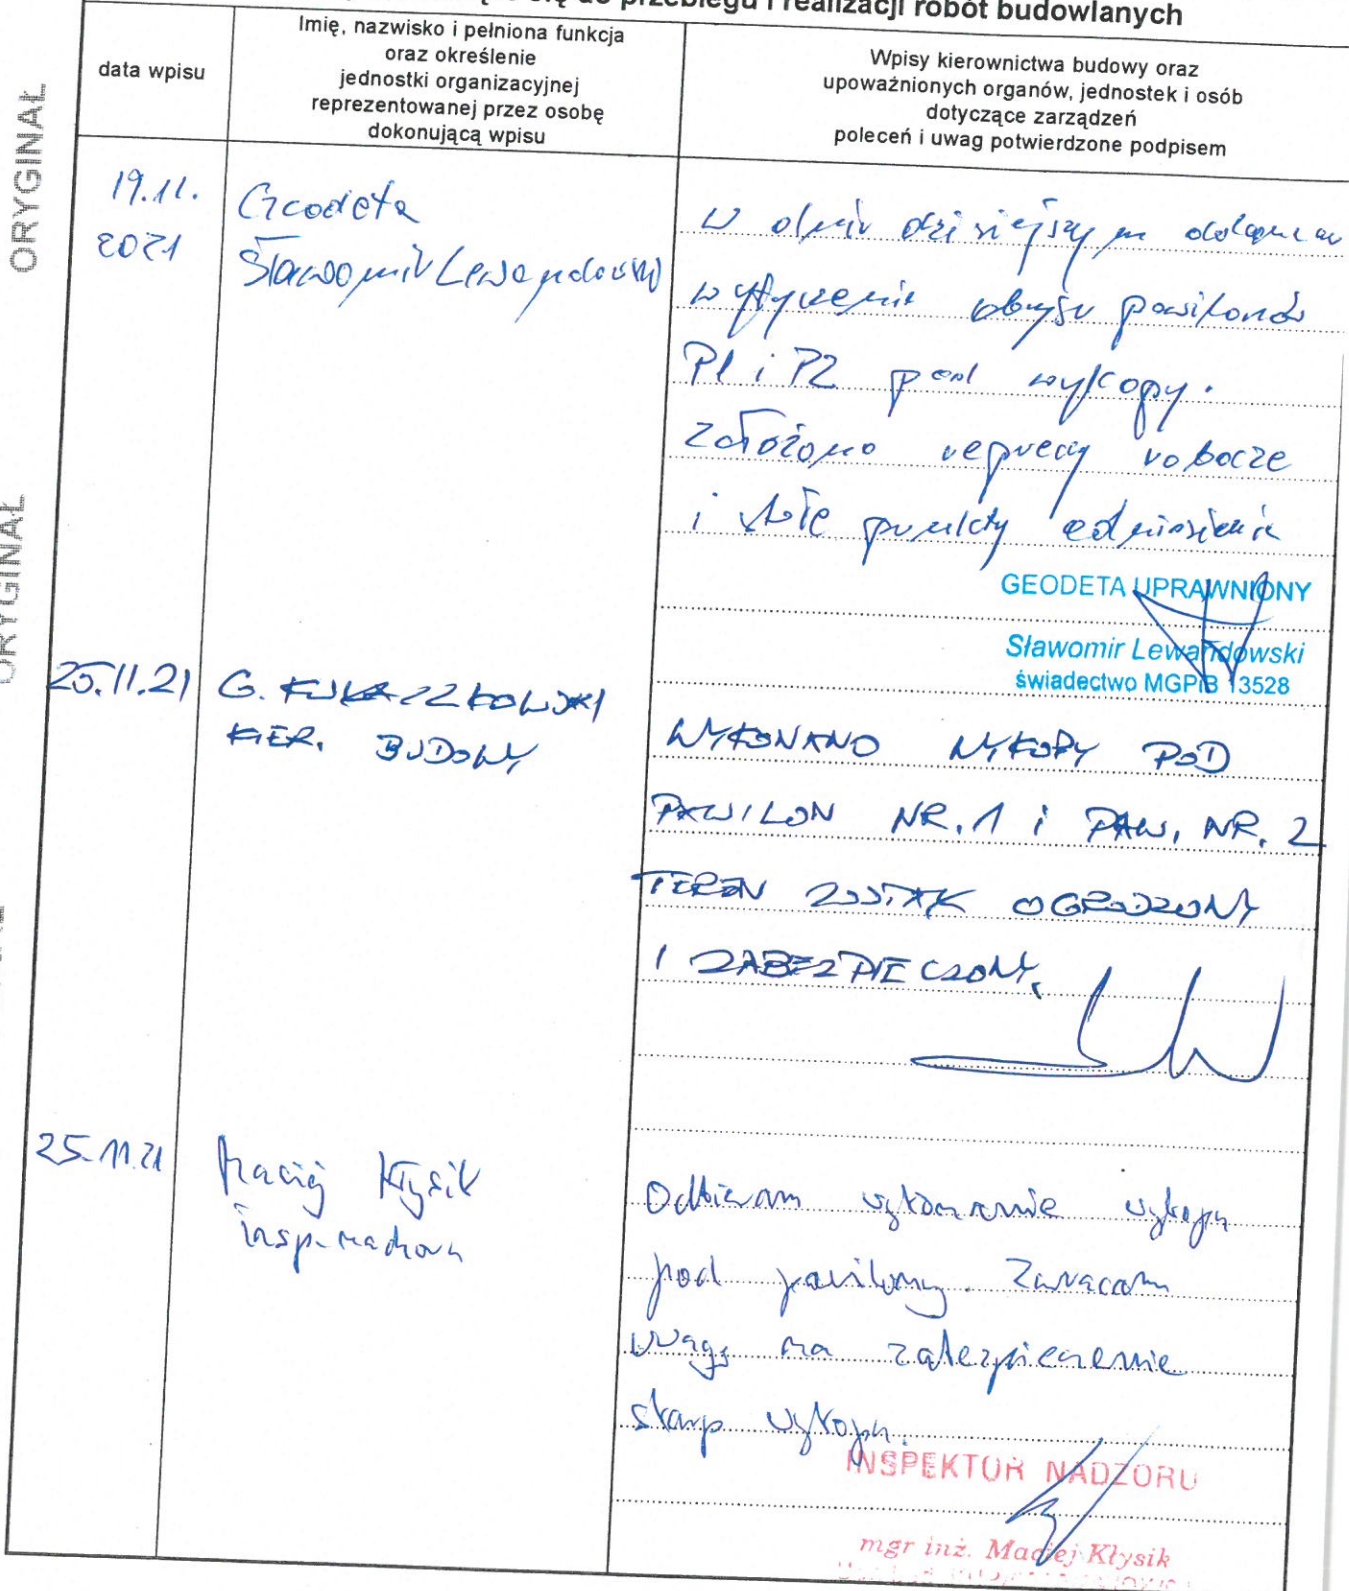 się do przebiegu i realizacji robót budowlanych
data wpisu
Imię, nazwisko i pełniona funkcja
oraz określenie
jednostki organizacyjnej
reprezentowanej przez osobę
dokonującą wpisu
Wpisy kierownictwa budowy oraz
upoważnionych organów, jednostek i osób
dotyczące zarządzeń
poleceń i uwag potwierdzone podpisem
ORYGINAŁ
ORYGINAŁ
19.11.
2021
Geodeta
Sławomir Lewandowski
W dniu dzisiejszym
wytyczenia obrysu pawilonów
P1 i P2 pod wykopy.
Założono repery robocze
i stałe punkty odniesienia
GEODETA UPRAWNIONY
Sławomir Lewandowski
świadectwo MGPiB 13528
25.11.21
G.
KIER. BUDOWY
WYKONANO WYKOPY POD
PAWILON NR.1 i PAW. NR. 2
TEREN ZOSTAŁ OGRODZONY
I ZABEZPIECZONY.
25.11.21
Maciej Kłysik
insp. nadzoru
Odbieram wykonanie wykopu
pod pawilony. Zwracam
uwagę na zabezpieczenie
skarp wykopu.
INSPEKTOR NADZORU
mgr inż. Maciej Kłysik